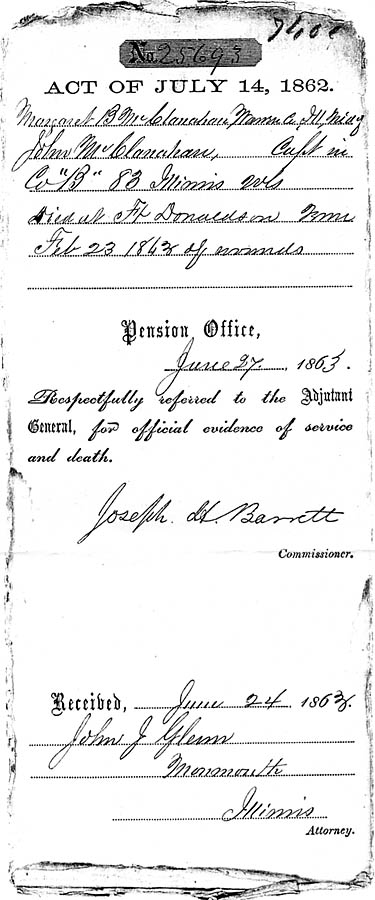 No. 25693
ACT OF JULY 14, 1862.
Margaret B McClanahan, Warren Co, Ill, Wid of
John McClanahan, Capt in
Co "B" 83 Illinois vols
Died at Ft Donaldson Tenn
Feb 23 1863 of wounds
Pension Office,
June 27, 1863.
Respectfully referred to the Adjutant
General, for official evidence of service
and death.
Joseph. H. Barrett
Commissioner.
Received, June 24 1863.
John J Glenn
Monmouth
Illinois
Attorney.